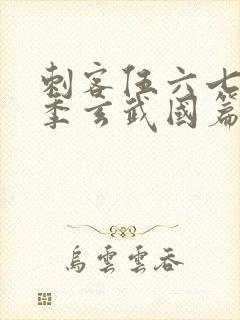 刺客伍六七
季玄武國篇
烏雲雲吞